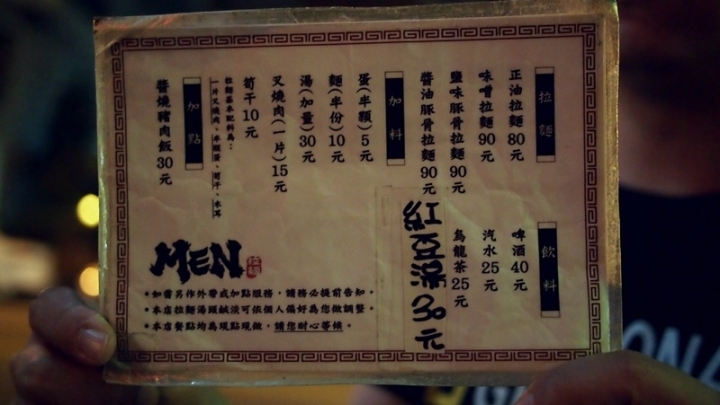 拉麵
正油拉麵 80元
味噌拉麵 90元
鹽味豚骨拉麵 90元
醬油豚骨拉麵 90元
加料
蛋(半顆) 5元
麵(半份) 10元
湯(加量) 30元
叉燒肉(一片) 15元
筍干 10元
拉麵基本配料為：
一片叉燒肉、半顆蛋、筍干、木耳
加點
醬燒豬肉飯 30元
飲料
啤酒 40元
汽水 25元
烏龍茶 25元
紅豆湯 30元
MEN
拉麵
•如需另作外帶或加點服務，請務必提前告知。
•本店拉麵湯頭鹹淡可依個人偏好為您做調整。
•本店餐點均為現點現做，請您耐心等候。